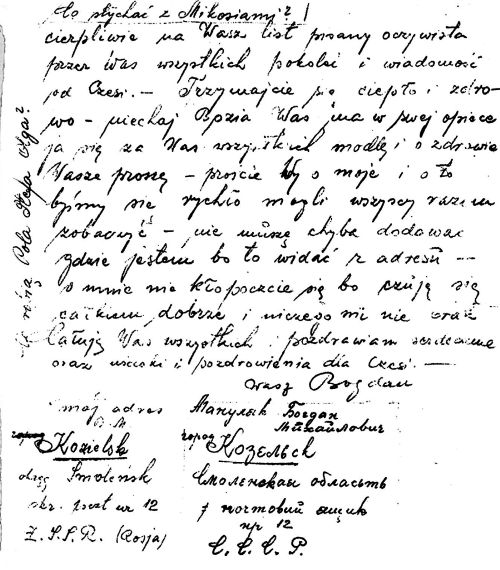 Co słychać z Mikosiami?
cierpliwie na Wasz list pisany oczywista
przez was wszystkich pokolei i wiadomość
od Czesi. — Trzymajcie się ciepło i zdro-
wo — niechaj Bozia Was ma w swej opiece
ja się za Was wszystkich modlę i o zdrowie
Wasze proszę — proście Wy o moje i o to
byśmy się rychło mogli wszyscy razem
zobaczyć — nie muszę chyba dodawać
gdzie jestem bo to widać z adresu —
o mnie nie kłopoczcie się bo czuję się
całkiem dobrze i niczego mi nie brak
Całuję Was wszystkich i pozdrawiam serdecznie
oraz uściski i pozdrowienia dla Czesi. —
wasz Bogdan
Pola Stefa Olga?
mój adres
Kozielsk
okręg Smoleńsk
skr. poczt nr 12
Z.S.S.R. (Rosja)
Богдан
Михайлович
город Козельск
Смоленская область
почтовий ящик
№р 12
С.С.С.Р.